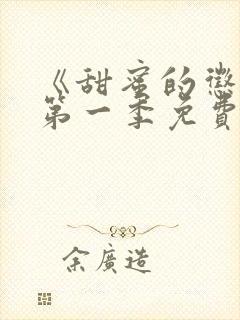 《甜蜜的懲
第一季免費
余廣造